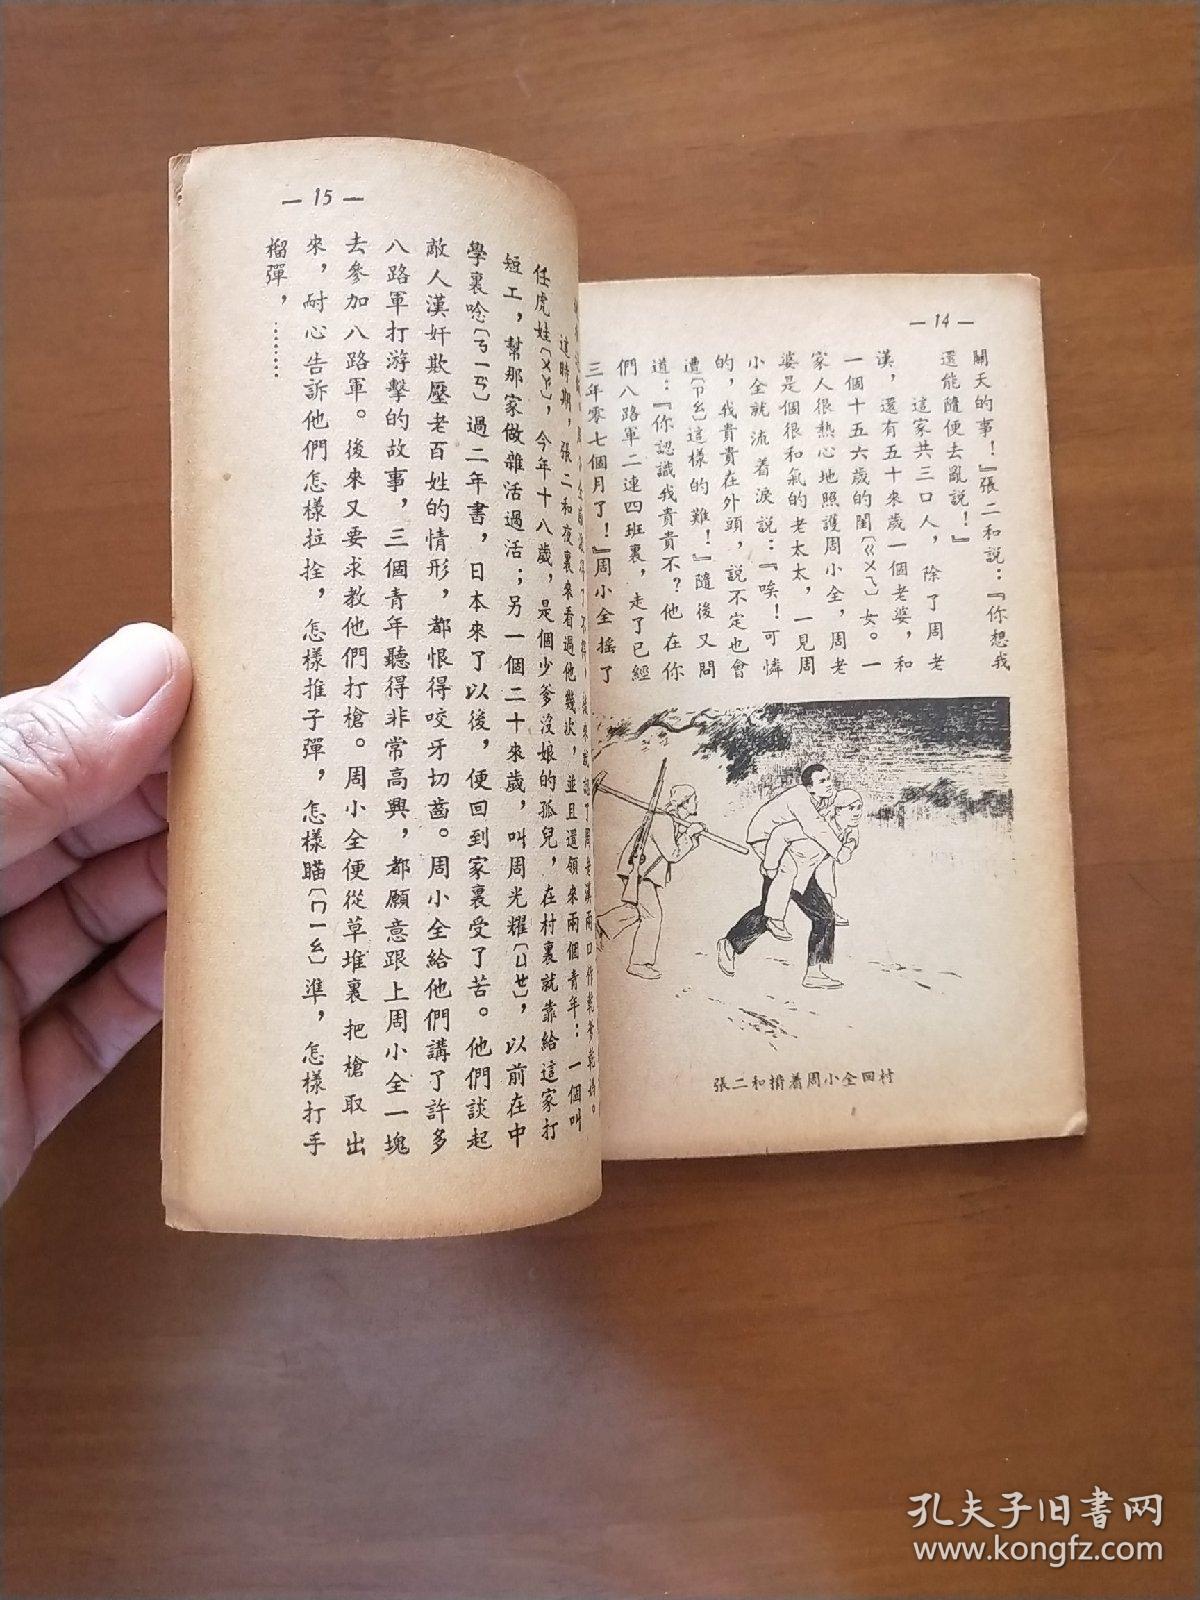 —14—
關天的事！』張二和說：『你想我
還能隨便去亂說！』
這家共三口人，除了周老
漢，還有五十來歲一個老婆，和
一個十五六歲的閨〔ㄍㄨㄟ〕女。一
家人很熱心地照護周小全，周老
婆是個很和氣的老太太，一見周
小全就流着淚說：『唉！可憐
的，我貴貴在外頭，說不定也會
遭〔ㄗㄠ〕這樣的難！』隨後又問
道：『你認識我貴貴不？他在你
們八路軍二連四班裏，走了已經
三年零七個月了！』周小全搖了
張二和揹着周小全回村
—15—
這時期，張二和夜裏來看過他幾次，並且還領來兩個青年：一個叫
任虎娃〔ㄨㄚ〕，今年十八歲，是個少爹沒娘的孤兒，在村裏就靠給這家打
短工，幫那家做雜活過活；另一個二十來歲，叫周光耀〔ㄩㄝ〕，以前在中
學裏唸〔ㄋㄧㄢ〕過二年書，日本來了以後，便回到家裏受了苦。他們談起
敵人漢奸欺壓老百姓的情形，都恨得咬牙切齒。周小全給他們講了許多
八路軍打游擊的故事，三個青年聽得非常高興，都願意跟上周小全一塊
去參加八路軍。後來又要求教他們打槍。周小全便從草堆裏把槍取出
來，耐心告訴他們怎樣拉拴，怎樣推子彈，怎樣瞄〔ㄇㄧㄠ〕準，怎樣打手
榴彈，………
孔夫子旧书网
www.kongfz.com